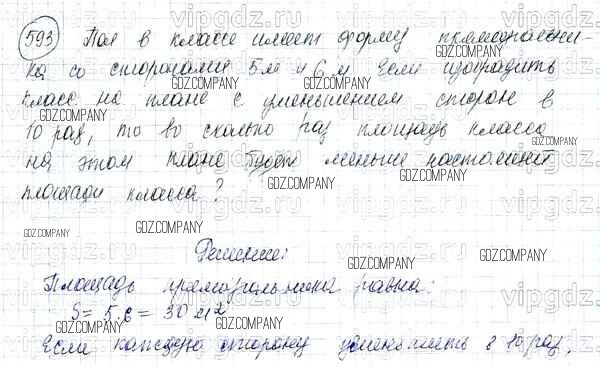 593 Пол в классе имеет форму прямоугольни-
ка со сторонами 5 м и 6 м. Если изобразить
класс на плане с уменьшением сторон в
10 раз, то во сколько раз площадь класса
на этом плане будет меньше настоящей
площади класса?
Решение:
Площадь прямоугольника равна:
S = 5·6 = 30 м²
Если каждую сторону уменьшить в 10 раз,